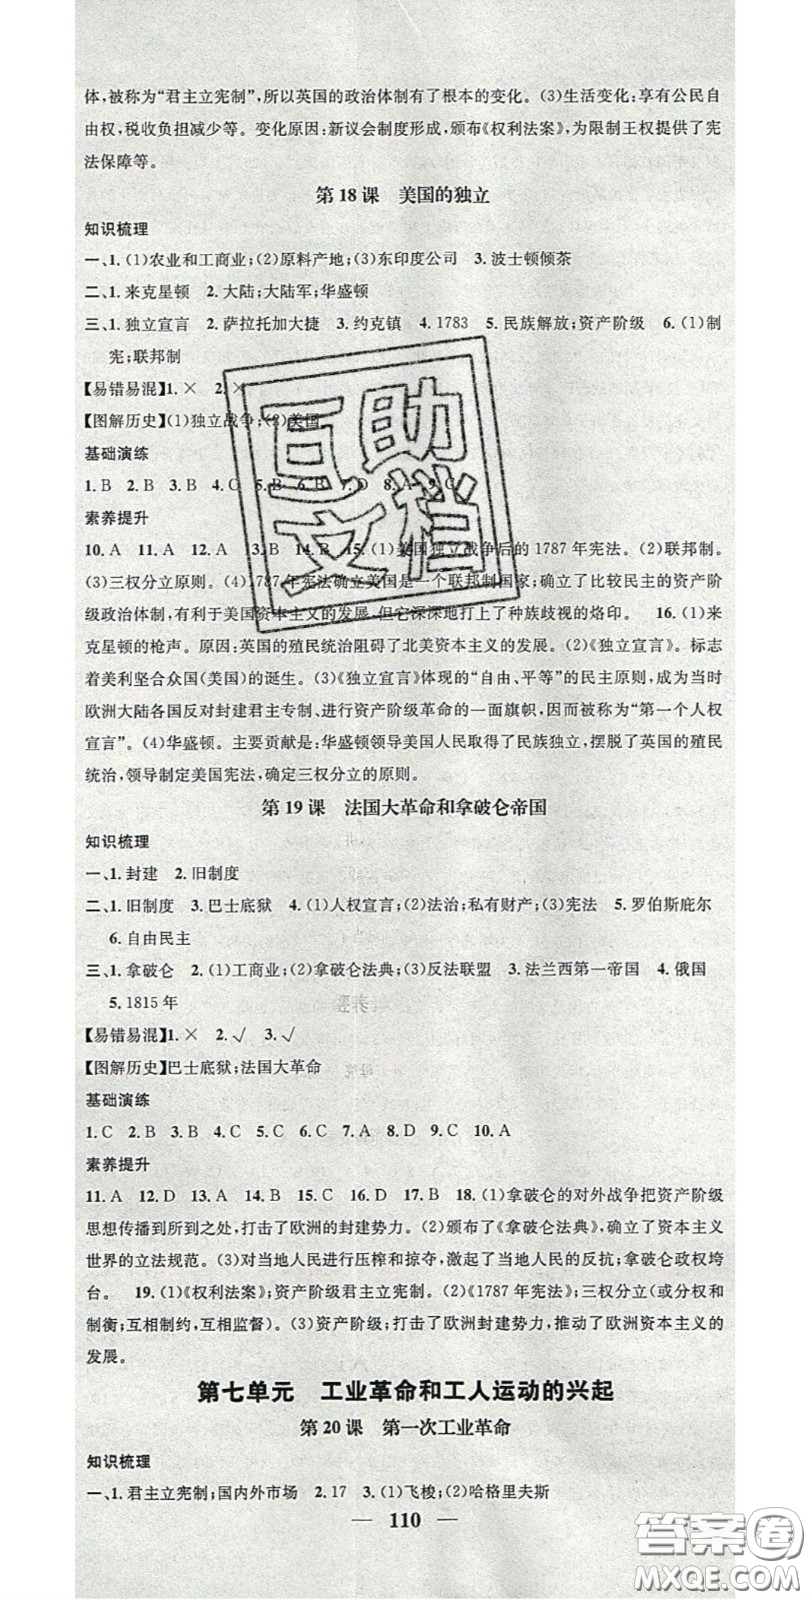 体,被称为“君主立宪制”,所以英国的政治体制有了根本的变化。(3)生活变化:享有公民自
由权,税收负担减少等。变化原因:新议会制度形成,颁布《权利法案》,为限制王权提供了宪
法保障等。
第18课 美国的独立
知识梳理
一、1.(1)农业和工商业;(2)原料产地;(3)东印度公司 3.波士顿倾茶
二、1.来克星顿 2.大陆;大陆军;华盛顿
三、1.独立宣言 2.萨拉托加大捷 3.约克镇 4.1783 5.民族解放;资产阶级 6.(1)制
宪;联邦制
【易错易混】1.× 2.×
【图解历史】(1)独立战争;(2)美国
基础演练
1.B 2.B 3.B 4.C 5.B 6.B 7.D 8.A 9.C
素养提升
10.A 11.A 12.A 13.B 14.B 15.(1)美国独立战争后的1787年宪法。(2)联邦制。
(3)三权分立原则。(4)1787年宪法确立美国是一个联邦制国家;确立了比较民主的资产阶
级政治体制,有利于美国资本主义的发展,但它深深地打上了种族歧视的烙印。 16.(1)来
克星顿的枪声。原因:英国的殖民统治阻碍了北美资本主义的发展。(2)《独立宣言》。标志
着美利坚合众国(美国)的诞生。(3)《独立宣言》体现的“自由、平等”的民主原则,成为当时
欧洲大陆各国反对封建君主专制、进行资产阶级革命的一面旗帜,因而被称为“第一个人权
宣言”。(4)华盛顿。主要贡献是:华盛顿领导美国人民取得了民族独立,摆脱了英国的殖民
统治,领导制定美国宪法,确定三权分立的原则。
第19课 法国大革命和拿破仑帝国
知识梳理
一、1.封建 2.旧制度
二、1.旧制度 3.巴士底狱 4.(1)人权宣言;(2)法治;私有财产;(3)宪法 5.罗伯斯庇尔
6.自由民主
三、1.拿破仑 2.(1)工商业;(2)拿破仑法典;(3)反法联盟 3.法兰西第一帝国 4.俄国
5.1815年
【易错易混】1.× 2.√ 3.√
【图解历史】巴士底狱;法国大革命
基础演练
1.C 2.B 3.B 4.C 5.C 6.C 7.A 8.D 9.C 10.A
素养提升
11.A 12.D 13.A 14.B 15.C 16.D 17.B 18.(1)拿破仑的对外战争把资产阶级
思想传播到所到之处,打击了欧洲的封建势力。(2)颁布了《拿破仑法典》,确立了资本主义
世界的立法规范。(3)对当地人民进行压榨和掠夺,激起了当地人民的反抗;拿破仑政权垮
台。 19.(1)《权利法案》;资产阶级君主立宪制。(2)《1787年宪法》;三权分立(或分权和
制衡;互相制约,互相监督)。(3)资产阶级;打击了欧洲封建势力,推动了欧洲资本主义的
发展。
第七单元 工业革命和工人运动的兴起
第20课 第一次工业革命
知识梳理
一、1.君主立宪制;国内外市场 2.17 3.(1)飞梭;(2)哈格里夫斯
— 110 —
互助
文档
答案圈
MXQE.COM